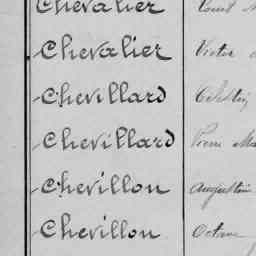 Chevalier
Chevalier Victor
Chevillard Célestin
Chevillard Pierre
Chevillon Augustin
Chevillon Octave